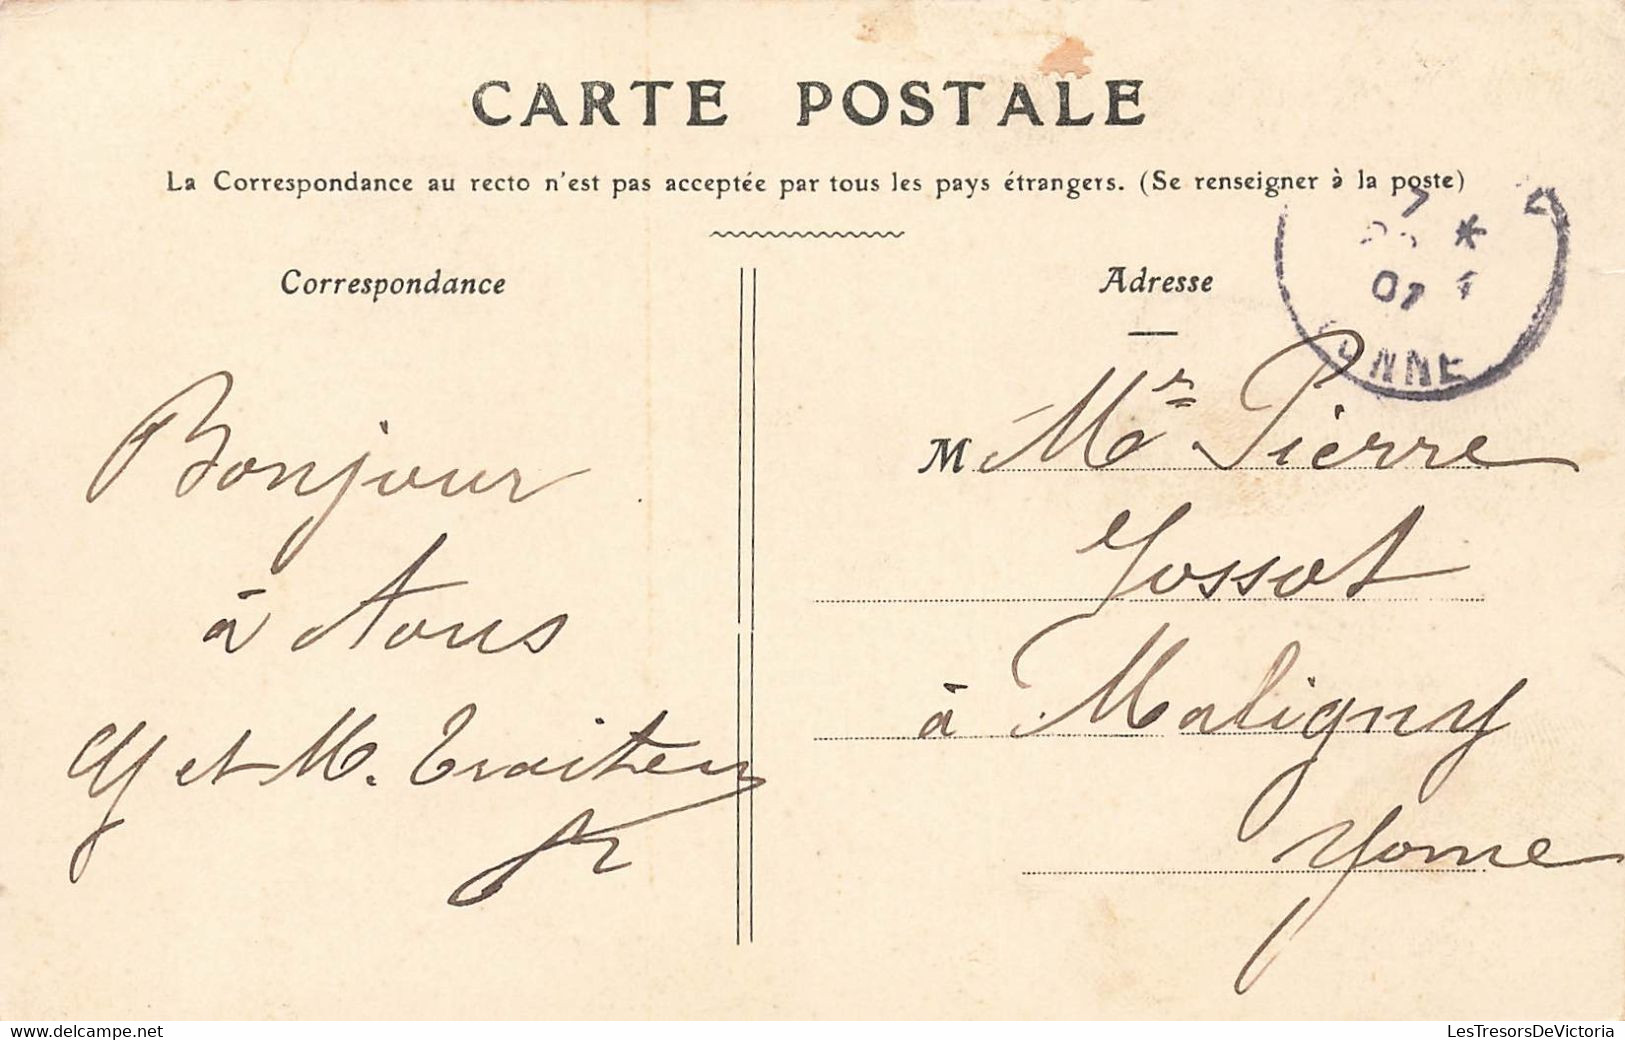 CARTE POSTALE
La Correspondance au recto n'est pas acceptée par tous les pays étrangers. (Se renseigner à la poste)
Correspondance
Bonjour
à tous
et M.
Adresse
07
M Mr Pierre
Jossot
à Maligny
Yonne
https://www.delcampe.net
LesTresorsDeVictoria